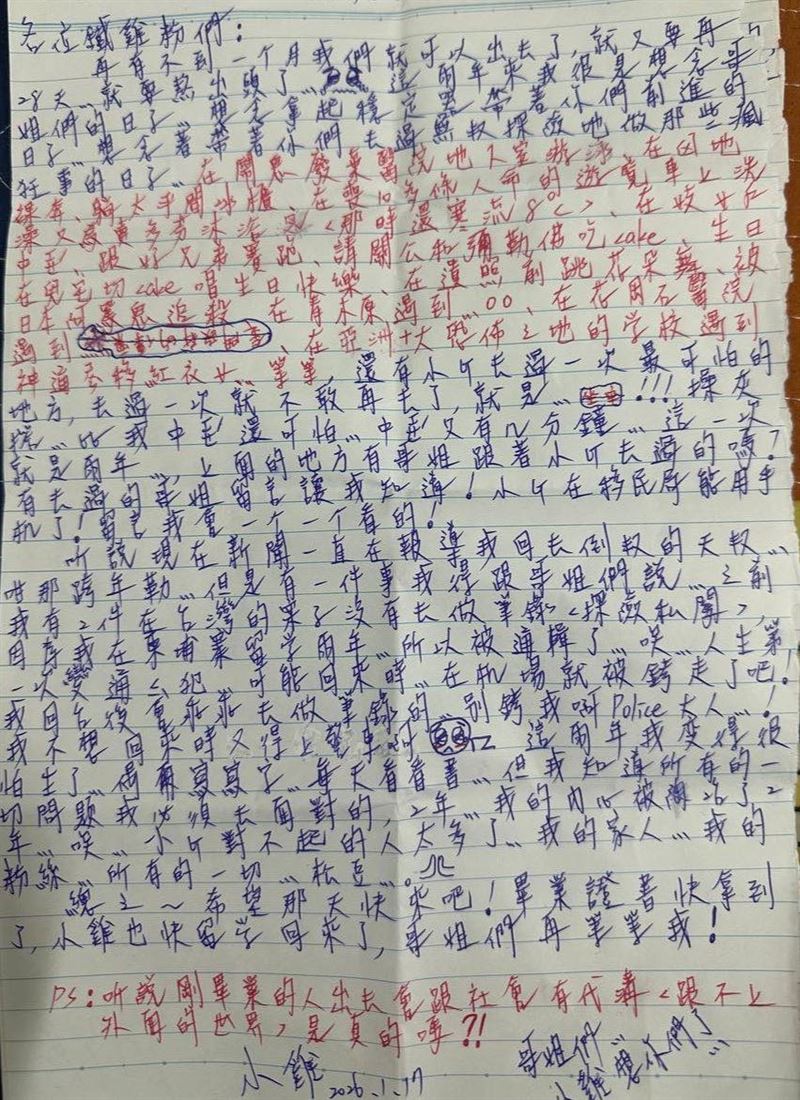 各位鐵雞粉們：
再有不到一个月我們就可以出去了，就又要再
28天…就要熬出頭了…這兩年來我很是想念哥
姐們的日子…想念拿起穩定器帶著你們前進的
日子…想念著帶著你們去過無數探險地做那些瘋
狂事的日子…在鬧鬼廢棄醫院地下室游泳、在凶地
裸奔、躺太平間冰櫃、在喪10多條人命的遊覽車上洗
澡又寫真多芬沐浴乳<那時還寒流8°C>、在妓女
中邪、跟好兄弟賽跑、請關公和彌勒佛吃cake、生日
在鬼宅切cake唱生日快樂、在遺照前跳花朵舞、被
日本阿飄惡追殺、在青木原遇到…○○、在花田石醫院
遇到、在亞洲十大恐佈之地的学校遇到
神道紅衣女…等等，還有小ㄐ去過一次最可怕的
地方，去過一次就不敢再去了，就是…!!!操灰
操…比我中邪還可怕…中邪又有几分鐘…這一次
就是兩年…，上面的地方有哥姐跟著小ㄐ去過的嗎?
有去過的哥姐留言讓我知道！小ㄐ在移民局能用手
机了！留言我會一个一个看的！
听説現在新聞一直在報導我回去倒數的天數…
咁那跨年勒…但是有一件事我得跟哥姐們説…之前
我有2件在台灣的案子沒有去做筆錄<探險私闖>，
因為我在柬埔寨留学兩年…所以被通緝了…唉…人生第
一次變通ㄑ犯，可能回來時…在机場就被銬走了吧！
我回台後會乖乖去做筆錄的，別銬我啊Police大人…！
我不想回來時又得上警車啊 這兩年我変得很
怕生了…偶爾寫寫字…每天看看書…但我知道所有的一
切問題我必須去面對的，2年…我的内心被關了2
年…唉…小ㄐ對不起的人太多了…我的家人…我的
粉絲…所有的一切…松豆…。
總之~希望那天快來吧！畢業證書快拿到
了，小雞也快留学回來了，哥姐們再等等我！
PS：听説剛畢業的人出去會跟社會有代溝<跟不上
外面的世界>是真的嗎?!
哥姐們…
小雞想你們了…
小雞 2026.1.17